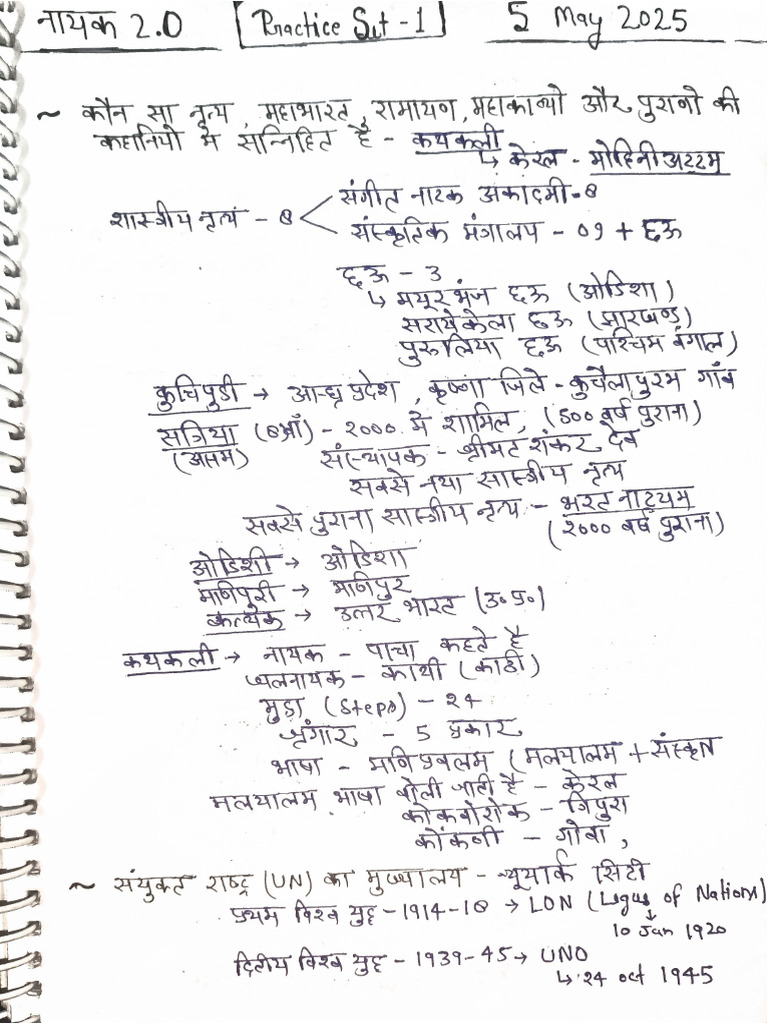 नायक 2.0 [Practice Set - 1] 5 May 2025
~ कौन सा नृत्य, महाभारत, रामायण, महाकाव्यो और पुराणो की
कहानियो मे सन्निहित है - कथकली
↳ केरल - मोहिनीअट्टम
संगीत नाटक अकादमी - 8
शास्त्रीय नृत्य - 8 <
संस्कृतिक मंत्रालय - 09 + छऊ
छऊ - 3
↳ मयूरभंज छऊ (ओडिशा)
सरायेकेला छऊ (झारखण्ड)
पुरुलिया छऊ (पश्चिम बंगाल)
कुचिपुडी → आन्ध्र प्रदेश, कृष्णा जिले - कुचैलापुरम गाँव
सत्रिया (8वाँ) - 2000 मे शामिल, (500 वर्ष पुराना)
(असम) संस्थापक - श्रीमट शंकर देव
सबसे नया सास्त्रीय नृत्य
सबसे पुराना सास्त्रीय नृत्य - भरतनाट्यम
(2000 वर्ष पुराना)
ओडिशी → ओडिशा
मणिपुरी → मणिपुर
कत्थक → उत्तर भारत (उ॰ प्र॰)
कथकली → नायक - पाचा कहते है
खलनायक - काथी (काठी)
मुद्रा (Steps) - 24
श्रृंगार - 5 प्रकार
भाषा - मणिप्रवलम (मलयालम + संस्कृत
मलयालम भाषा बोली जाती है - केरल
कोकबोरोक - त्रिपुरा
कोंकणी - गोवा,
~ संयुक्त राष्ट्र (UN) का मुख्यालय - न्यूयार्क सिटी
प्रथम विश्व युद्द - 1914-18 → LON (Legue of Nations)
↓
10 Jan 1920
द्वितीय विश्व युद्द - 1939-45 → UNO
↳ 24 oct 1945